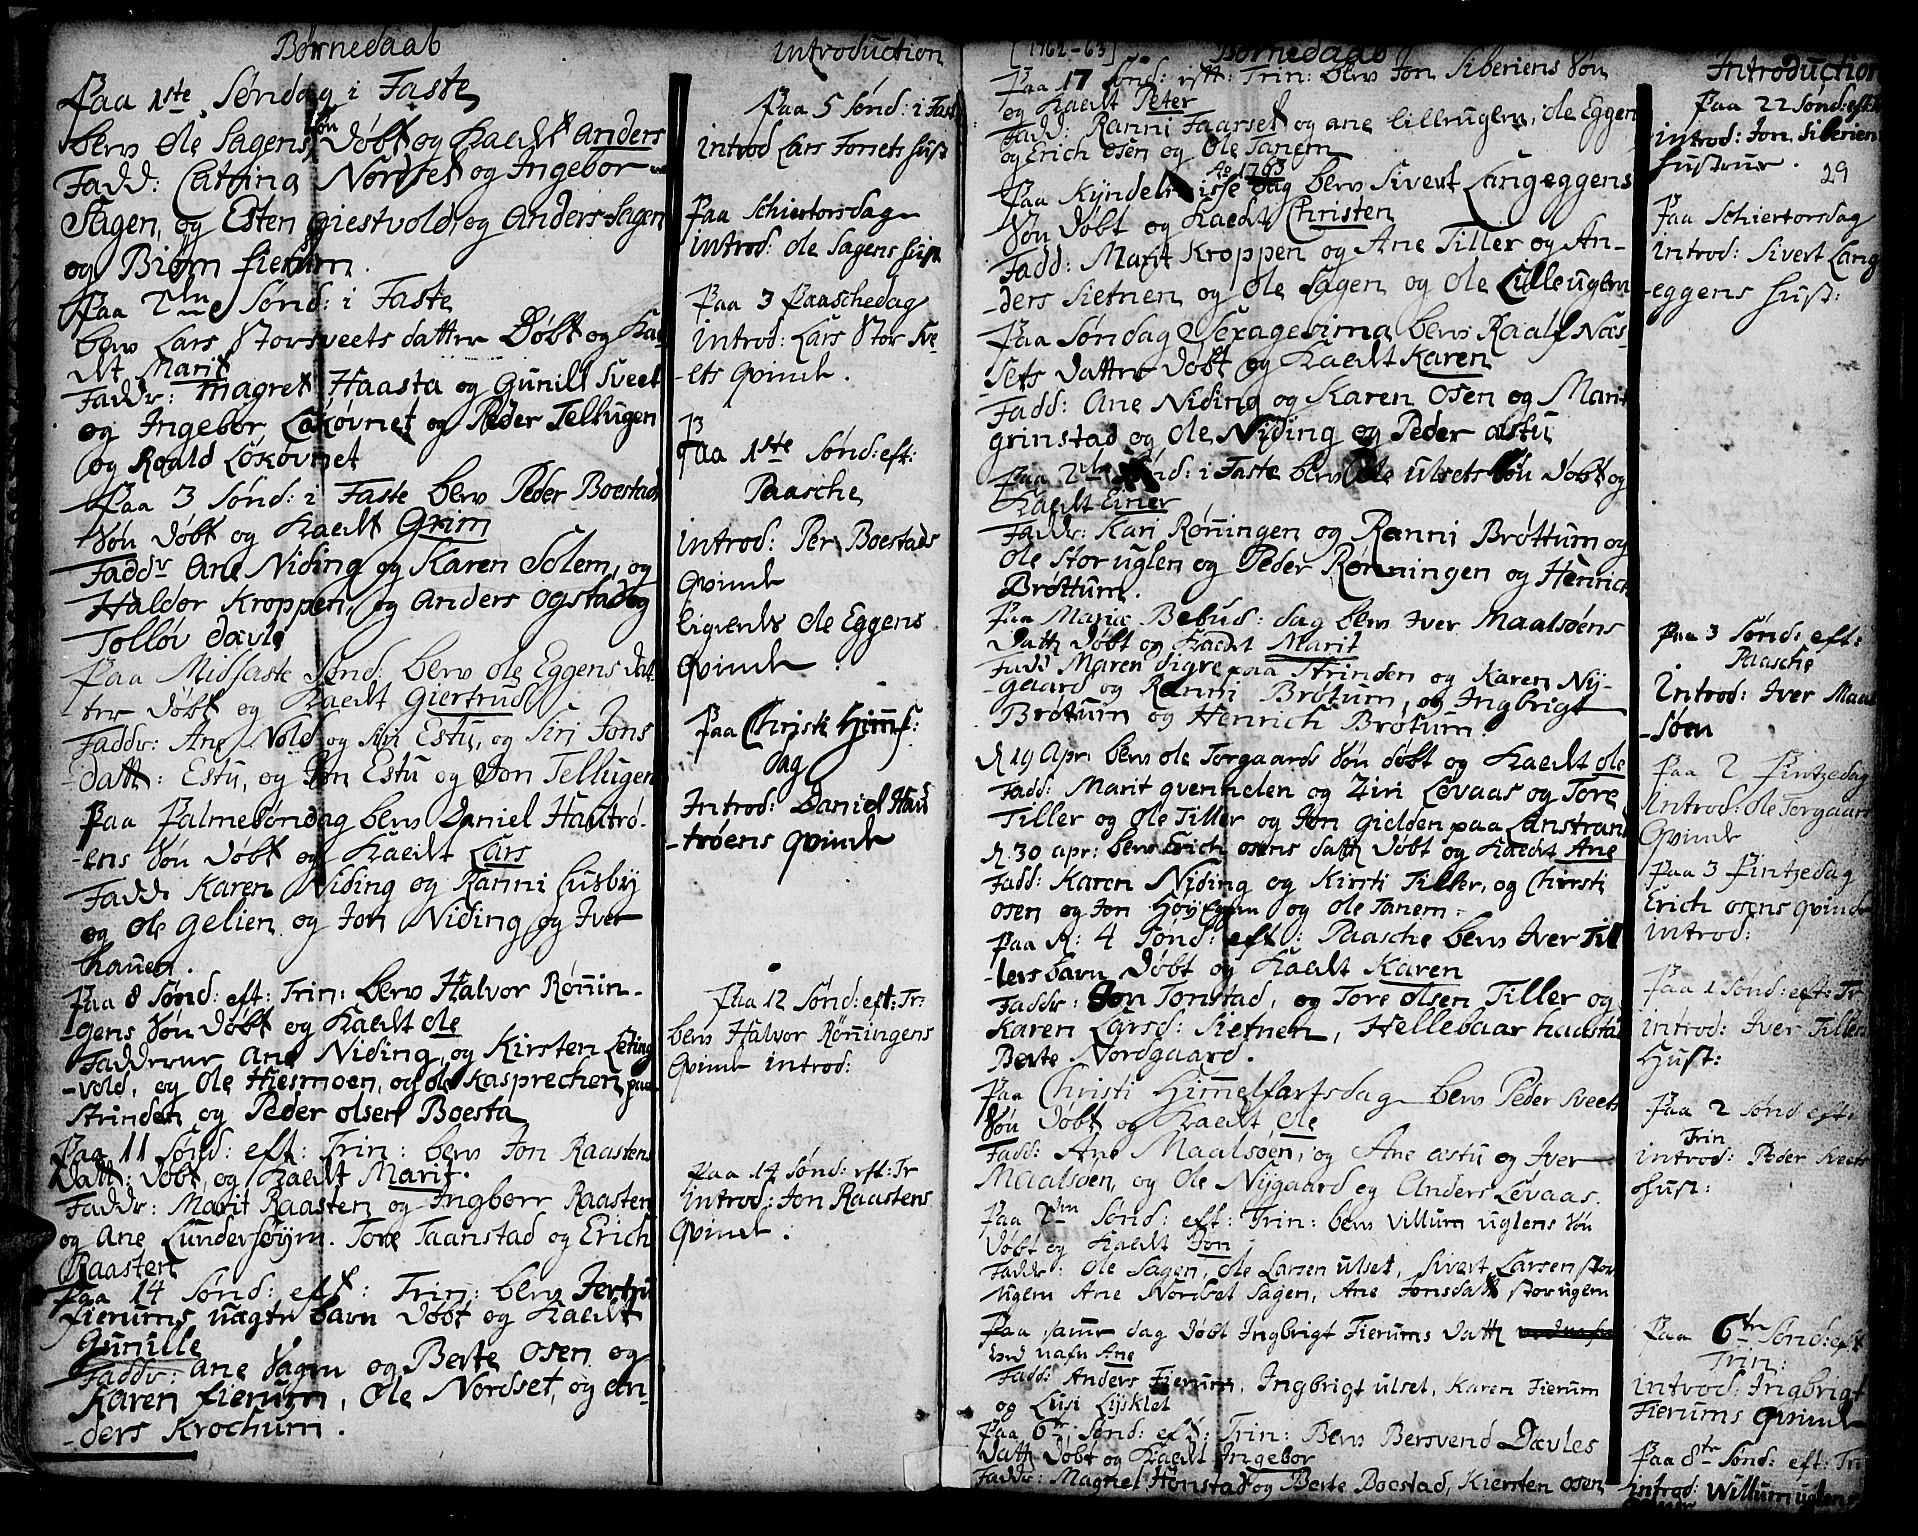 Børnedaab
Paa 1ste Søndag i Faste
blev Ole Sagens Søn Døbt og Kaedt Anders
Fadd: Cathrina Nordset og Ingebor
Sagen, og Esten giestvold, og Anders Sagen
og Biørn fierum.
Paa 2den Sønd: i Faste
blev Lars Storsveets datter Døbt og Kae
dt Marit
Faddr: Magret Haasta og Gunill Sveet
og Ingebor Løkøvnet og Peder Tellugen
og Roald Løkøvnet
Paa 3 Sønd: i Faste blev Peder Boestads
Søn Døbt og Kaedt Grim
Faddr Ane Niding og Karen Solem, og
Haldor Kroppen, og Anders Ogstad og
Tolløv davle
Paa Midfaste Sønd: blev Ole Eggens dat
ter Døbt og Kaedt Giertrud
Faddr: Ane Vold og Siri Estu, og Siri Jons
datt: Estu, og Jon Estu og Jon Tellugen
Paa Palmesøndag blev Daniel Hautrø-
-ens Søn Døbt og Kaedt Lars
Fadd: Karen Niding og Ranni Husby
og Ole Gelien og Jon Niding, og Iver
hauen.
Paa 8 Sønd: eft: Trin: blev Halvor Rønnin-
gens Søn Døbt og Kaedt Ole
Fadderne Ane Niding, og Kirsten Leting
-vold, og Ole Hiesmoen, og Ole Kasprechen paa
Strinden og Peder Olsen Boesta
Paa 11 Sønd: eft: Trin: blev Jon Raastens
Datt: Døbt, og Kaedt Marit.
Faddr: Marit Raasten og Ingborr Raasten
og Ane Lundersøym. Tore Taanstad og Erich
Raasten
Paa 14 Sønd: eft: Trin: blev
fierums uægte barn Døbt og Kaedt
Gunille
Faddr: Ane Sagen og Berte Osen og
Karen fierum, Ole Nordset, og An-
-ders Krochum.
Introduction
Paa 5 Sønd: i Fast
Introd Lars Forsets Hust
Paa Schiertorsdag
Introd: Ole Sagens Hust
Paa 3 Paaschedag
Introd: Lars Stor Sve-
-ets Qvinde.
Paa 1ste Sønd: eft:
Paasche
Introd: Per Boestads
Qvinde
ligeledes Ole Eggens
Qvinde.
Paa Christi Himmf:
dag
Introd: Daniel Hau
-trøens Qvinde
Paa 12 Sønd: eft: Tr:
blev Halvor Rønningens
Qvinde introd:
Paa 14 Sønd: eft: Tr
Introd: Jon Raastens
Qvinde.
[1762-63] Børnedaab
Paa 17 Sønd: eft: Trin: blev Jon Siberiens Søn
og Kaedt Peter
Fadd: Ranni Faarset og Ane Lilleuglen, Ole Eggen
og Erich Osen og Ole Tanem
Ao 1763
Paa Kyndelmisse Dag blev Sivert Langeggens
Søn Døbt og Kaedt Christen
Fadd: Marit Kroppen og Ane Tiller og An-
ders Sietnen og Ole Sagen og Ole Lilleuglem
Paa Søndag Sexagesima blev Raalf Nas-
sets Datter Døbt og Kaedt Karen
Fadd: Ane Niding og Karen Osen og Marit
grinstad og Ole Niding og Peder Østu
Paa 2den Sønd: i Faste blev Ole Ulsets Søn Døbt og
Kaedt Einer
Faddr: Kari Rønningen og Ranni Brøttum og
Ole Storuglen og Peder Rønningen og Henrich
Brøttum.
Paa Mariæ Bebud: dag blev Iver Maalsøens
Datt Døbt og Kaedt Marit
Fadd Maren Digre paa Strinden og Karen Ny-
gaard og Ranni Brøtum, og Ingbrigt
Brøtum og Henrich Brøtum.
d. 19 Apr: blev Ole Torgaards Søn døbt og Kaedt Ole
Fadd: Marit Qvenhden og Ziri Levaas og Tore
Tiller og Ole Tiller og Jon Gielden paa Lanstrand
d. 30 apr: blev Erich Osens datt Døbt og Kaedt Ane
Fadd: Karen Niding og Kirsti Tiller, og Chersti
Osen og Jon Høyegm og Ole Tanem.
Paa d: 4 Sønd: eft: Paasche blev Iver Til
-lers barn Døbt og Kaedt Karen
Faddr: Jon Tonstad, og Tore Olsen Tiller og
Karen Larsd: Sietnen, Hellebaar Haastad
Berte Nordgaard.
Paa Christi Himmelfartsdag blev Peder Sveets
Søn Døbt og Kaedt Ole
Fadd: Ane Maalsøen, og Ane Østu og Iver
Maalsøen, og Ole Nygaard og Anders Levaas.
Paa 2den Sønd: eft: Trin: blev Villum Uglens Søn
Døbt og Kaedt Jon
Faddr: Ole Sagen, Ole Larsen Ulset, Sivert Larsen Stor
uglem Ane Nordset Sagen, Ane Jonsdatt Storuglem
Paa samme dag Døbt Ingbrigt Fierums Datt
ved nafn Ane
Fadd: Anders Fierum, Ingbrigt Ulset, Karen Fierum
og Lusi Lysklet
Paa 6te Sønd: eft: Trin: Blev Bersvend Dævles
Datt Døbt og Kaedt Ingebor
Faddr: Magnel Hønstad og Berte Boestad, Kiersten Osen
Introduction
Paa 22 Sønd: eft:
introd: Jon Siberiens
Hustrue.
29
Paa Schiertorsdag
Introd: Sivert Lang
-eggens Hust:
Paa 3 Sønd: eft:
Paasche
Introd: Iver Maal
-søen
Paa 2 Pintzedag
Introd: Ole Torgaards
Qvinde
Paa 3 Pintzedag
Erich Osens Qvinde
introd:
Paa 1 Sønd: eft: Tr
introd: Iver Tillers
Hust:
Paa 2 Sønd eft:
Trin
introd: Peder Sveets
Hust:
Paa 6te Sønd: eft
Trin:
introd: Ingbrigt
Fierums Qvinde
Paa 8te Sønd: eft: Tri
introd: Willum Uglens